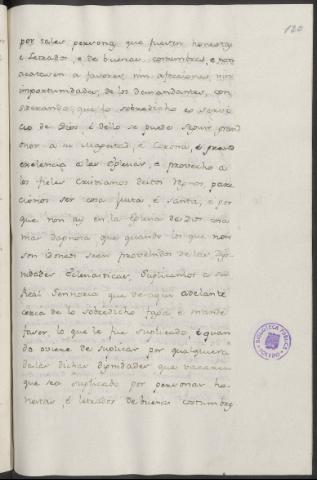 120
por tales personas que fuesen honestas
e Letrados, e de buenas costumbres, e non
acatasen a favores, nin afecciones, nin
importunidades, de los demandantes, con
siderando, que lo sobredicho es servi
cio de Dios, e dello se puede seguir, grand
onor a su Magestad, e Corona, e grand
exelencia a las Eglesias, e provecho a
los fieles Cristianos destos Regnos, pare
cionos ser cosa justa, e santa, e por
que non ay en la Eglesia de Dios cosa
mas dapnosa que quando los que non
son idoneos sean proveidos de las dig
nidades Eclesiasticas, Suplicamos a su
Real Sennoria que de aqui adelante
cerca de lo sobredicho faga e mande
facer, lo que le fue suplicado e quan
do oviere de suplicar por qualquiera
de las dichas dignidades que vacaren
que sea suplicado por personas ho
nestas, e letrados de buenas costumbres
BIBLIOTECA PUBLICA
TOLEDO